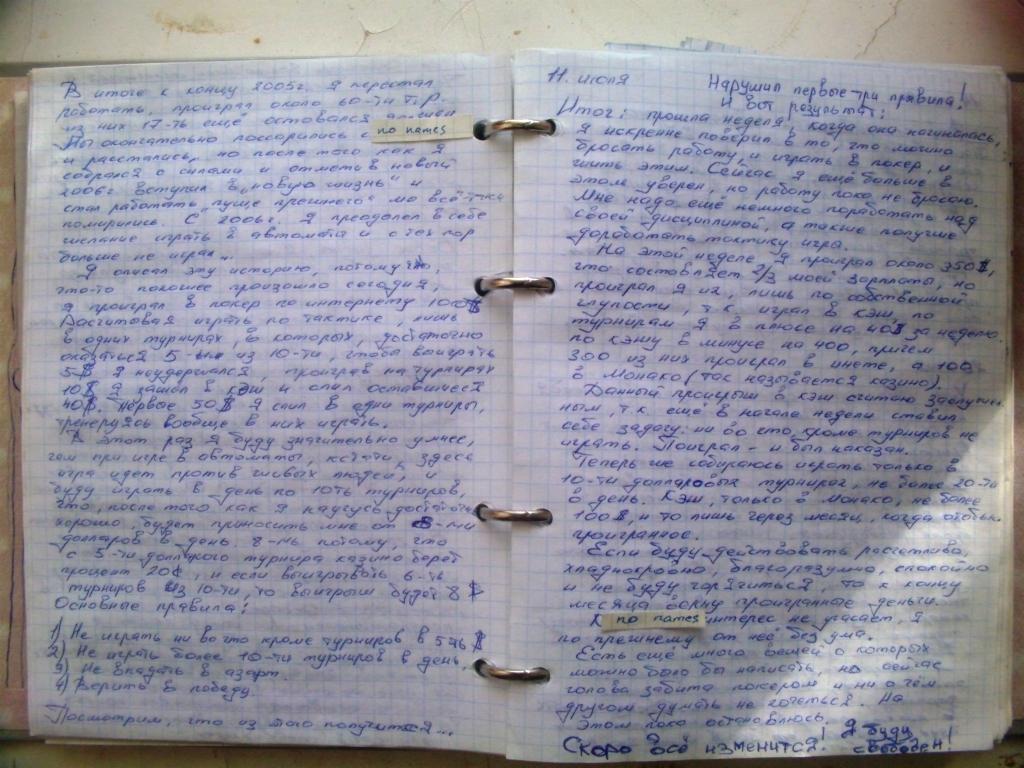 В итоге к концу 2005г. я перестал
работать, проиграл около 60-ти т.р.
из них 17-ть ещё оставался должен
Мы окончательно поссорились с no names
и расстались, но после того как я
собрался с силами и отметив новый
2006г вступил в "новую жизнь" и
стал работать "пуще прежнего" мы всё-таки
помирились. С 2006г. я преодолел в себе
желание играть в автоматы и с тех пор
больше не играл...
Я описал эту историю, потому что,
что-то похожее произошло сегодня,
я проиграл в покер по интернету 100$
Расчитывая играть по тактике, лишь
в одних турнирах, в которых, достаточно
оказаться 5-ым из 10-ти, чтобы выиграть
5$ я неудержался, проиграв на турнирах
10$ я зашёл в кэш и слил оставшиеся
40$. Первые 50$ я слил в одни турниры,
тренеруясь вообще в них играть.
В этот раз я буду значительно умнее,
чем при игре в автоматы, кстати, здесь
игра идет против живых людей, и
буду играть в день по 10ть турниров,
что, после того как я научусь достаточно
хорошо, будет приносить мне от 8-ми
долларов в день. 8-мь потому, что
с 5-ти долларого турнира казино берет
процент 20¢, и если выигрывать 6-ть
турниров из 10-ти, то выигрыш будет 8$
Основные правила:
1) Не играть ни во что кроме турниров в 5ть $
2) Не играть более 10-ти турниров в день.
3) Не впадать в азарт.
4) Верить в победу.
Посмотрим, что из этого получится...
11. июля
Нарушил первые три правила!
И вот результат:
Итог: прошла неделя, когда она начиналась,
я искренне поверил в то, что можно
бросать работу, и играть в покер, и
жить этим. Сейчас я ещё больше в
этом уверен, но работу пока не бросаю.
Мне надо ещё немного поработать над
своей дисциплиной, а также получше
доработать тактику игры.
На этой неделе я проиграл около 350$,
что составляет 2/3 моей зарплаты, но
проиграл я их, лишь по собственной
глупости, т.к. играл в кэш, по
турнирам я в плюсе на 40$ за неделю.
по кэшу в минусе на 400, причем
300 из них проиграл в инете, а 100
в Монако (так называется казино).
Данный проигрыш в кэш считаю заслужен-
ным, т.к. ещё в начале недели ставил
себе задачу: ни во что кроме турниров не
играть. Поиграл - и был наказан.
Теперь же собираюсь играть только в
10-ти долларовых турнирах, не более 20-ти
в день. Кэш, только в Монако, не более
100$, и то лишь через месяц, когда отобью
проигранное.
Если буду действовать расчетливо,
хладнокровно, благоразумно, спокойно
и не буду горячиться, то к концу
месяца верну проигранные деньги.
К no names интерес не угасает, я
по прежнему от неё без ума.
Есть ещё много вещей о которых
можно было бы написать, но сейчас
голова забита покером и ни о чём
другом думать не хочеться. На
этом пока остановлюсь.
Скоро всё изменится! Я буду
свободен!